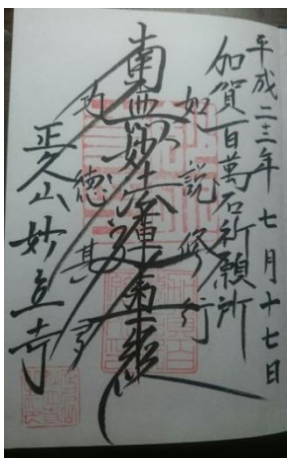 平成二三年 七月十七日
加賀百萬石祈願所
如説修行
南無妙法蓮華經
功徳甚多
正久山 妙立寺